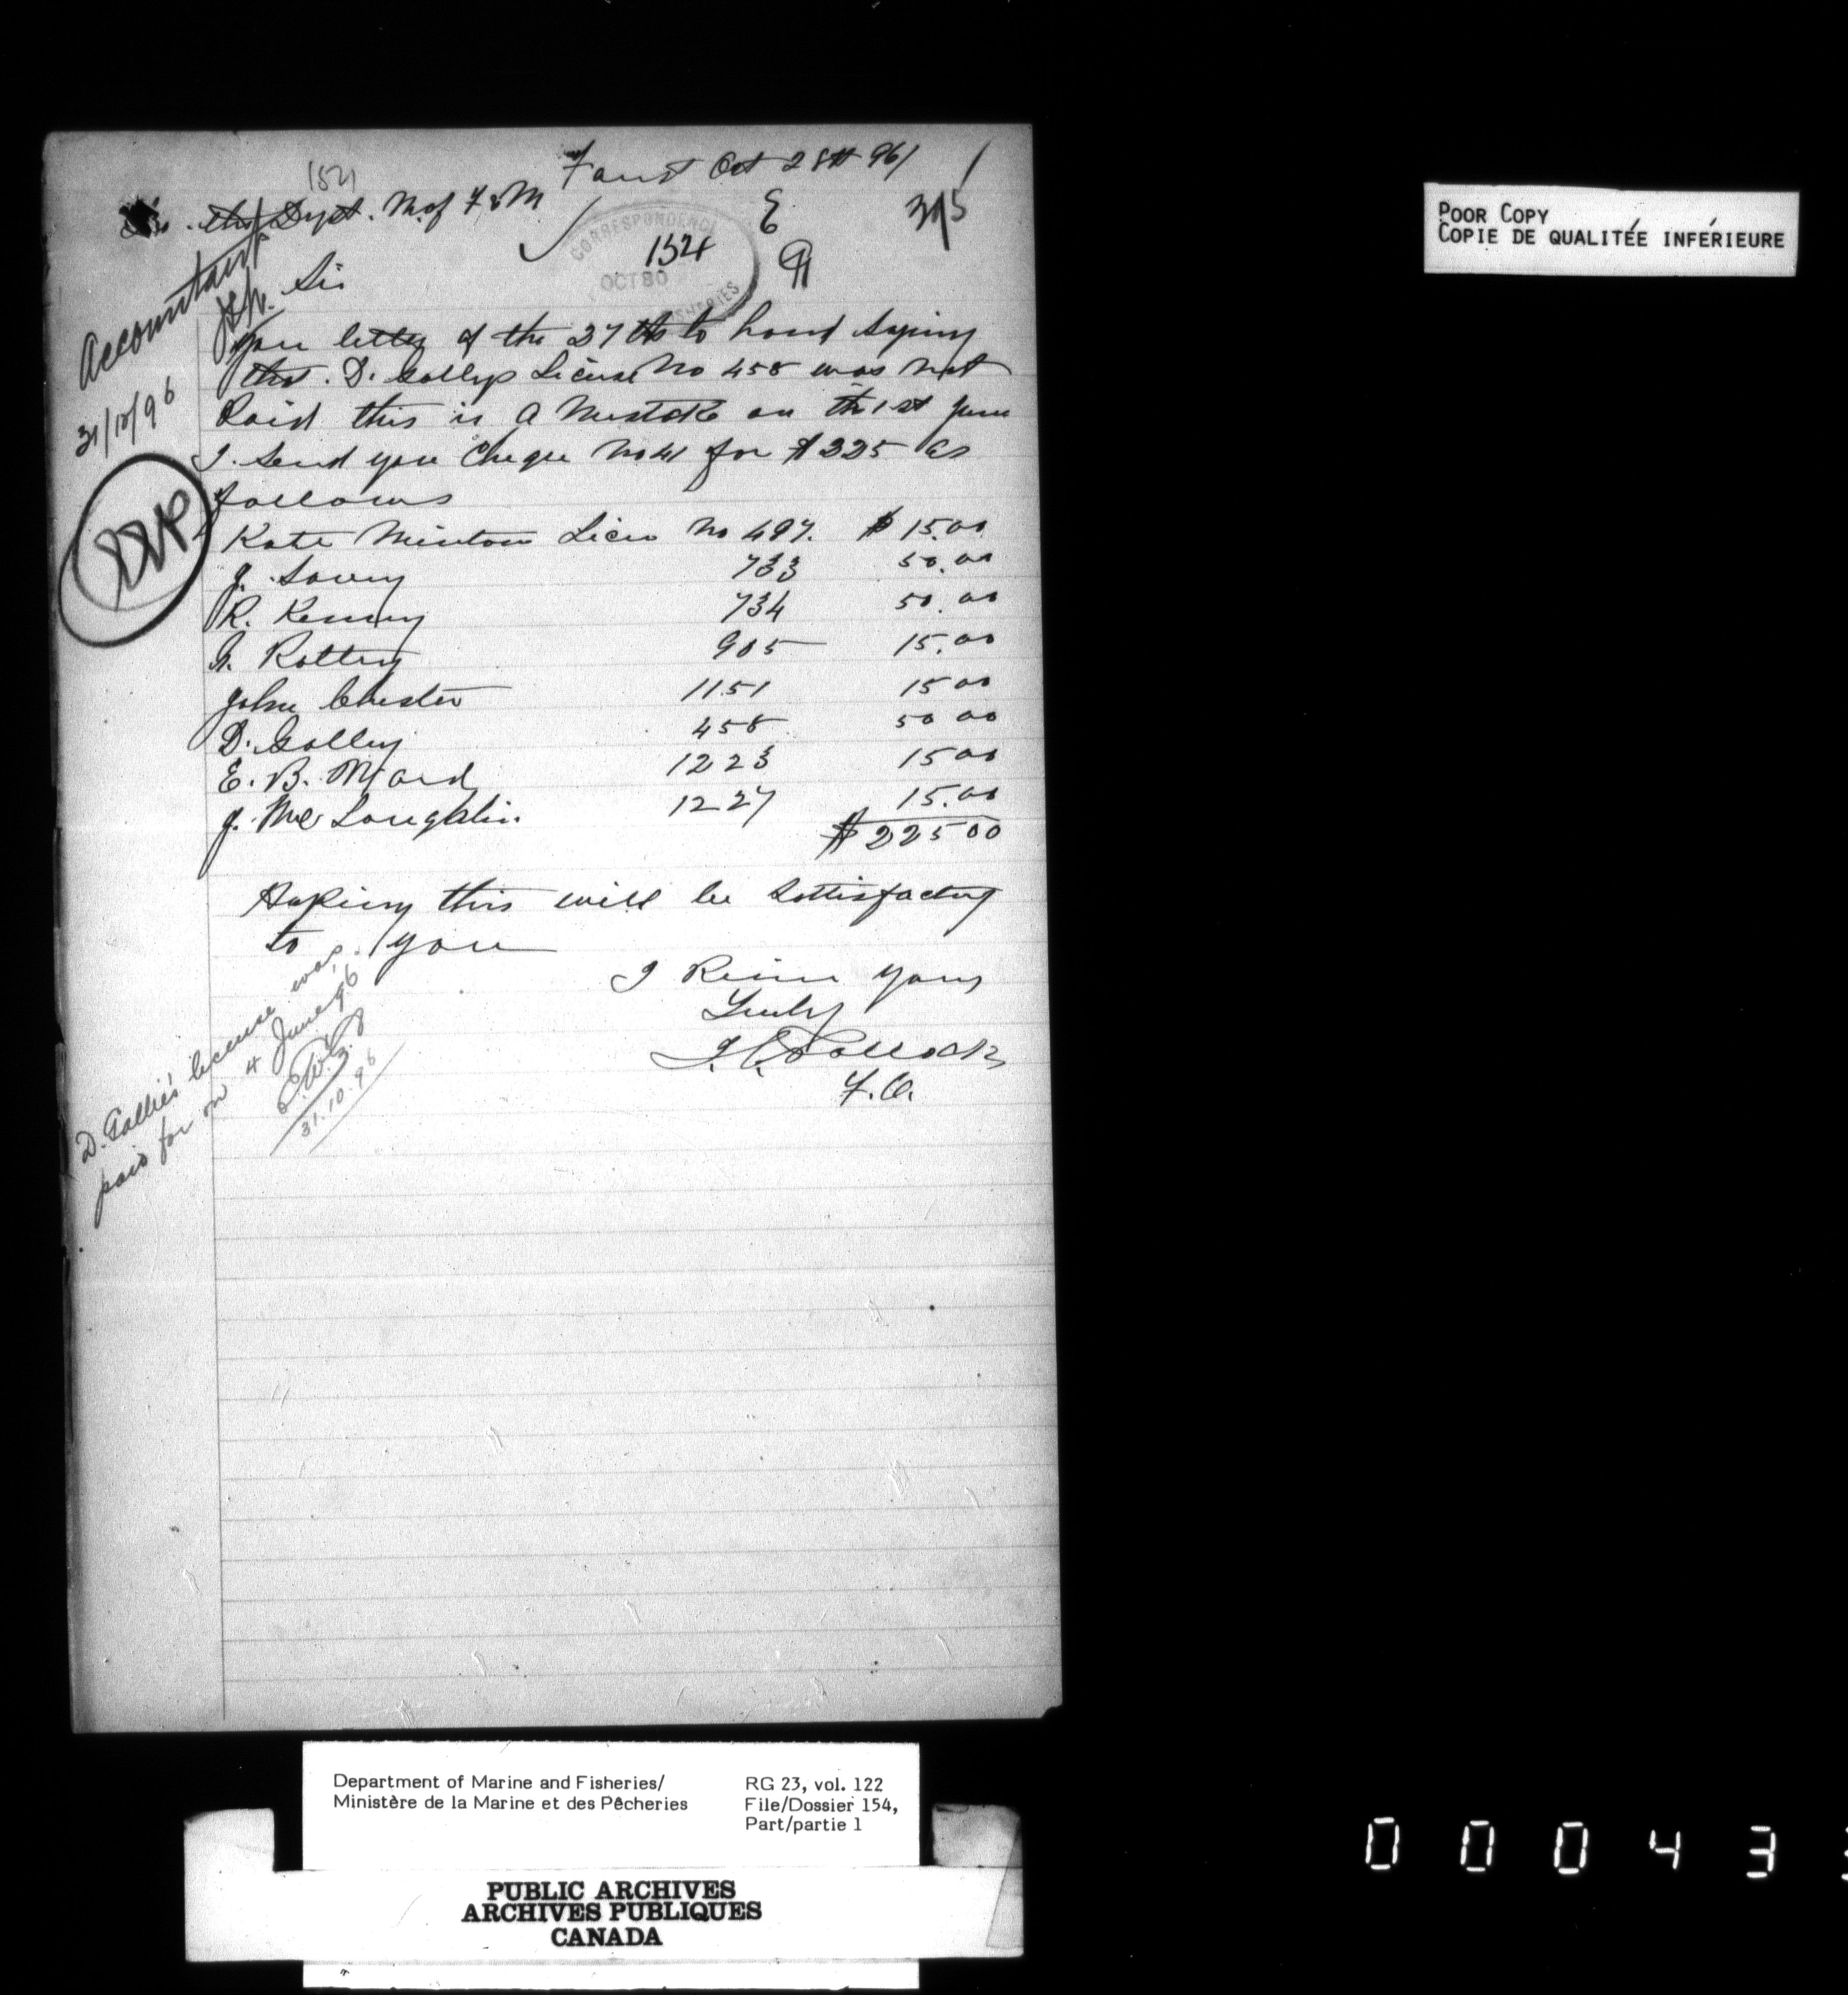 Oct 28th 96/
1521
Dept. M. of F & M
E
395
CORRESPONDENCE
1524
OCT 30
FISHERIES
Accountant
31/10/96
Sir
Your letter of the 27th to hand saying
that D. Golley License No 458 was not
Paid this is a Mistake on th 1st June
I Send you Cheque No 41 for $225 as
follows
Kate Minton Licen No 497. $15.00
J. Lovey 733 50.00
R. Kenney 734 50.00
G. Rottey 905 15.00
John Chester 1151 15 00
D. Golley 458 50 00
E. B. Ward 1223 15 00
J. McLoughlin 1227 15.00
$225 00
Hoping this will be Sattisfactory
to you
I Remn yours
Truly
Pollock
F.O.
D. Gallie's license was
paid for on 4 June 96
31.10.96
POOR COPY
COPIE DE QUALITÉE INFÉRIEURE
Department of Marine and Fisheries/
Ministère de la Marine et des Pêcheries
RG 23, vol. 122
File/Dossier 154,
Part/partie 1
PUBLIC ARCHIVES
ARCHIVES PUBLIQUES
CANADA
0 0 0 4 3